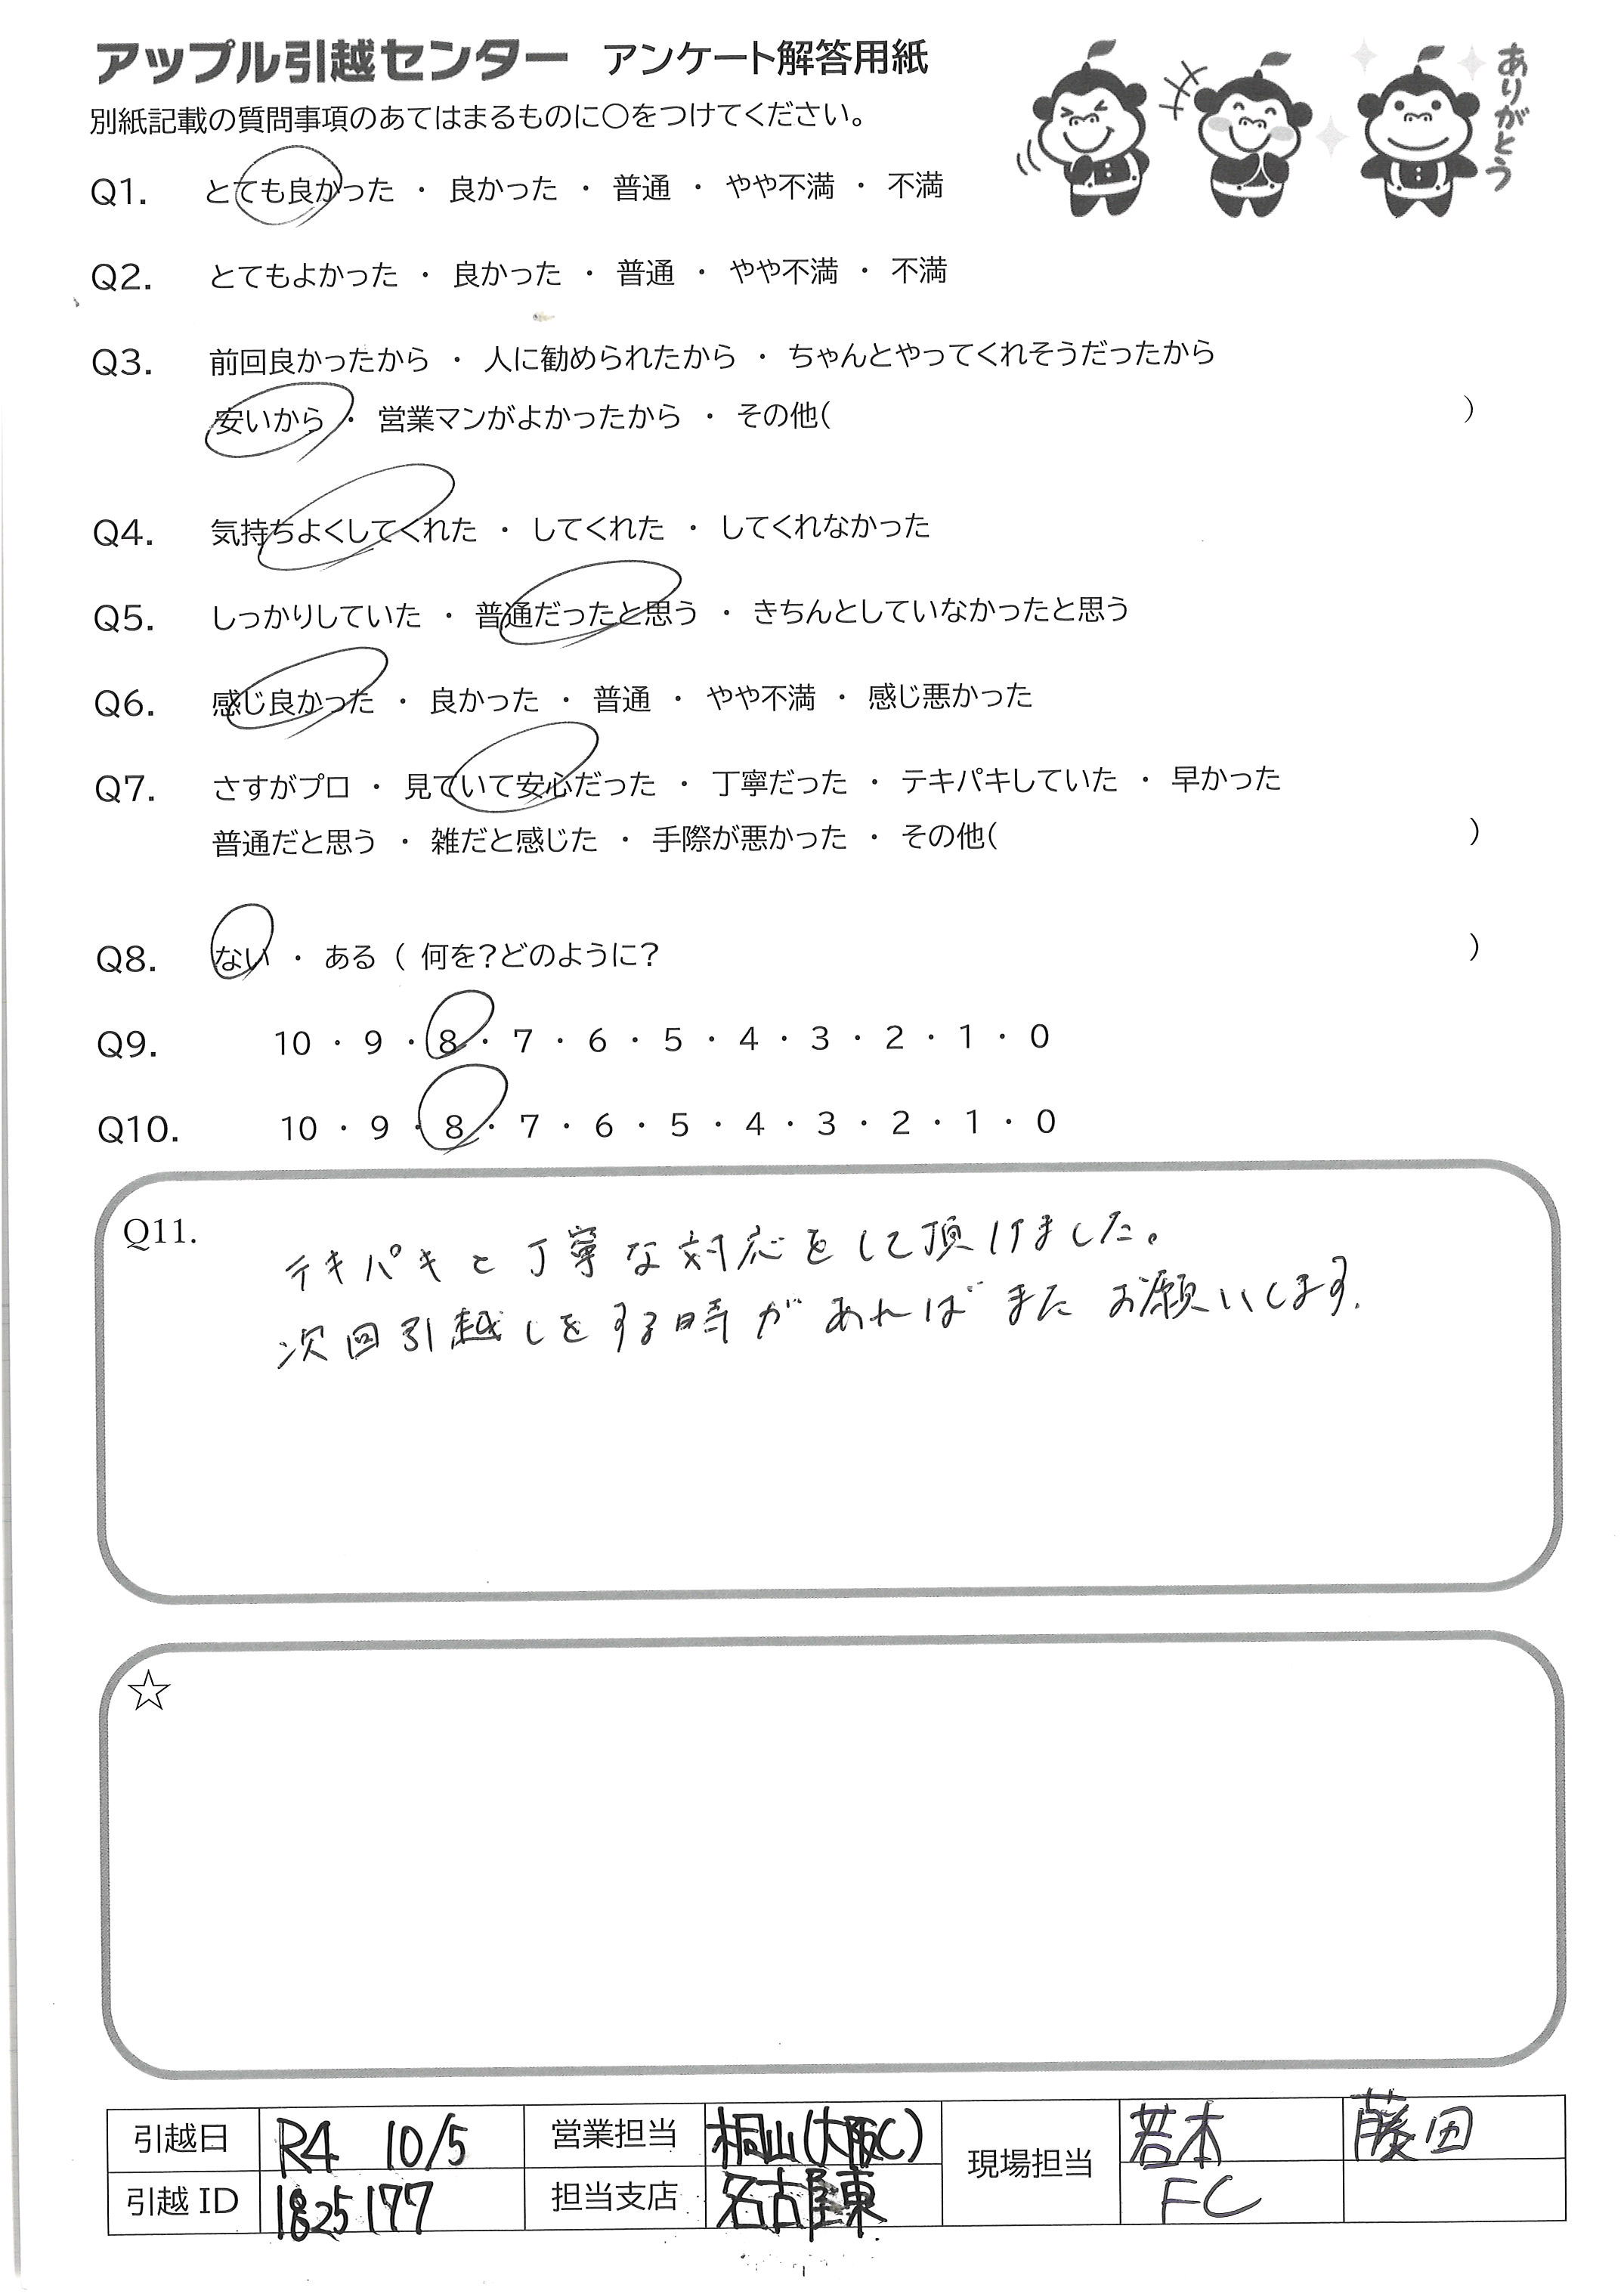 アップル引越センター アンケート解答用紙
ありがとう
別紙記載の質問事項のあてはまるものに○をつけてください。
Q1. とても良かった ・ 良かった ・ 普通 ・ やや不満 ・ 不満
Q2. とてもよかった ・ 良かった ・ 普通 ・ やや不満 ・ 不満
Q3. 前回良かったから ・ 人に勧められたから ・ ちゃんとやってくれそうだったから
安いから ・ 営業マンがよかったから ・ その他( )
Q4. 気持ちよくしてくれた ・ してくれた ・ してくれなかった
Q5. しっかりしていた ・ 普通だったと思う ・ きちんとしていなかったと思う
Q6. 感じ良かった ・ 良かった ・ 普通 ・ やや不満 ・ 感じ悪かった
Q7. さすがプロ ・ 見ていて安心だった ・ 丁寧だった ・ テキパキしていた ・ 早かった
普通だと思う ・ 雑だと感じた ・ 手際が悪かった ・ その他( )
Q8. ない ・ ある ( 何を?どのように? )
Q9. 10 ・ 9 ・ 8 ・ 7 ・ 6 ・ 5 ・ 4 ・ 3 ・ 2 ・ 1 ・ 0
Q10. 10 ・ 9 ・ 8 ・ 7 ・ 6 ・ 5 ・ 4 ・ 3 ・ 2 ・ 1 ・ 0
Q11. テキパキと丁寧な対応をして頂けました。
次回引越しをする時があればまたお願いします.
☆
引越日 R4 10/5 営業担当 桐山(大阪C) 現場担当 若本 藤田
引越ID 1825177 担当支店 名古屋東 FC